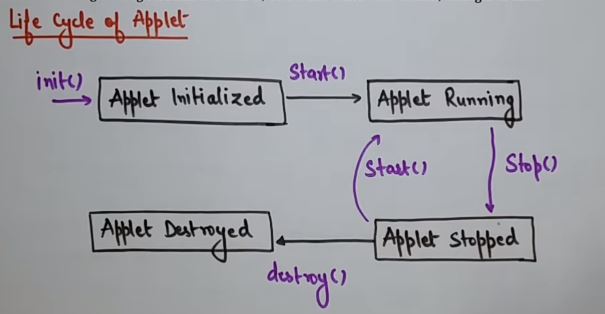 Life Cycle of Applet
init()
Applet Initialized
Start()
Applet Running
Start()
Stop()
Applet Destroyed
destroy()
Applet Stopped